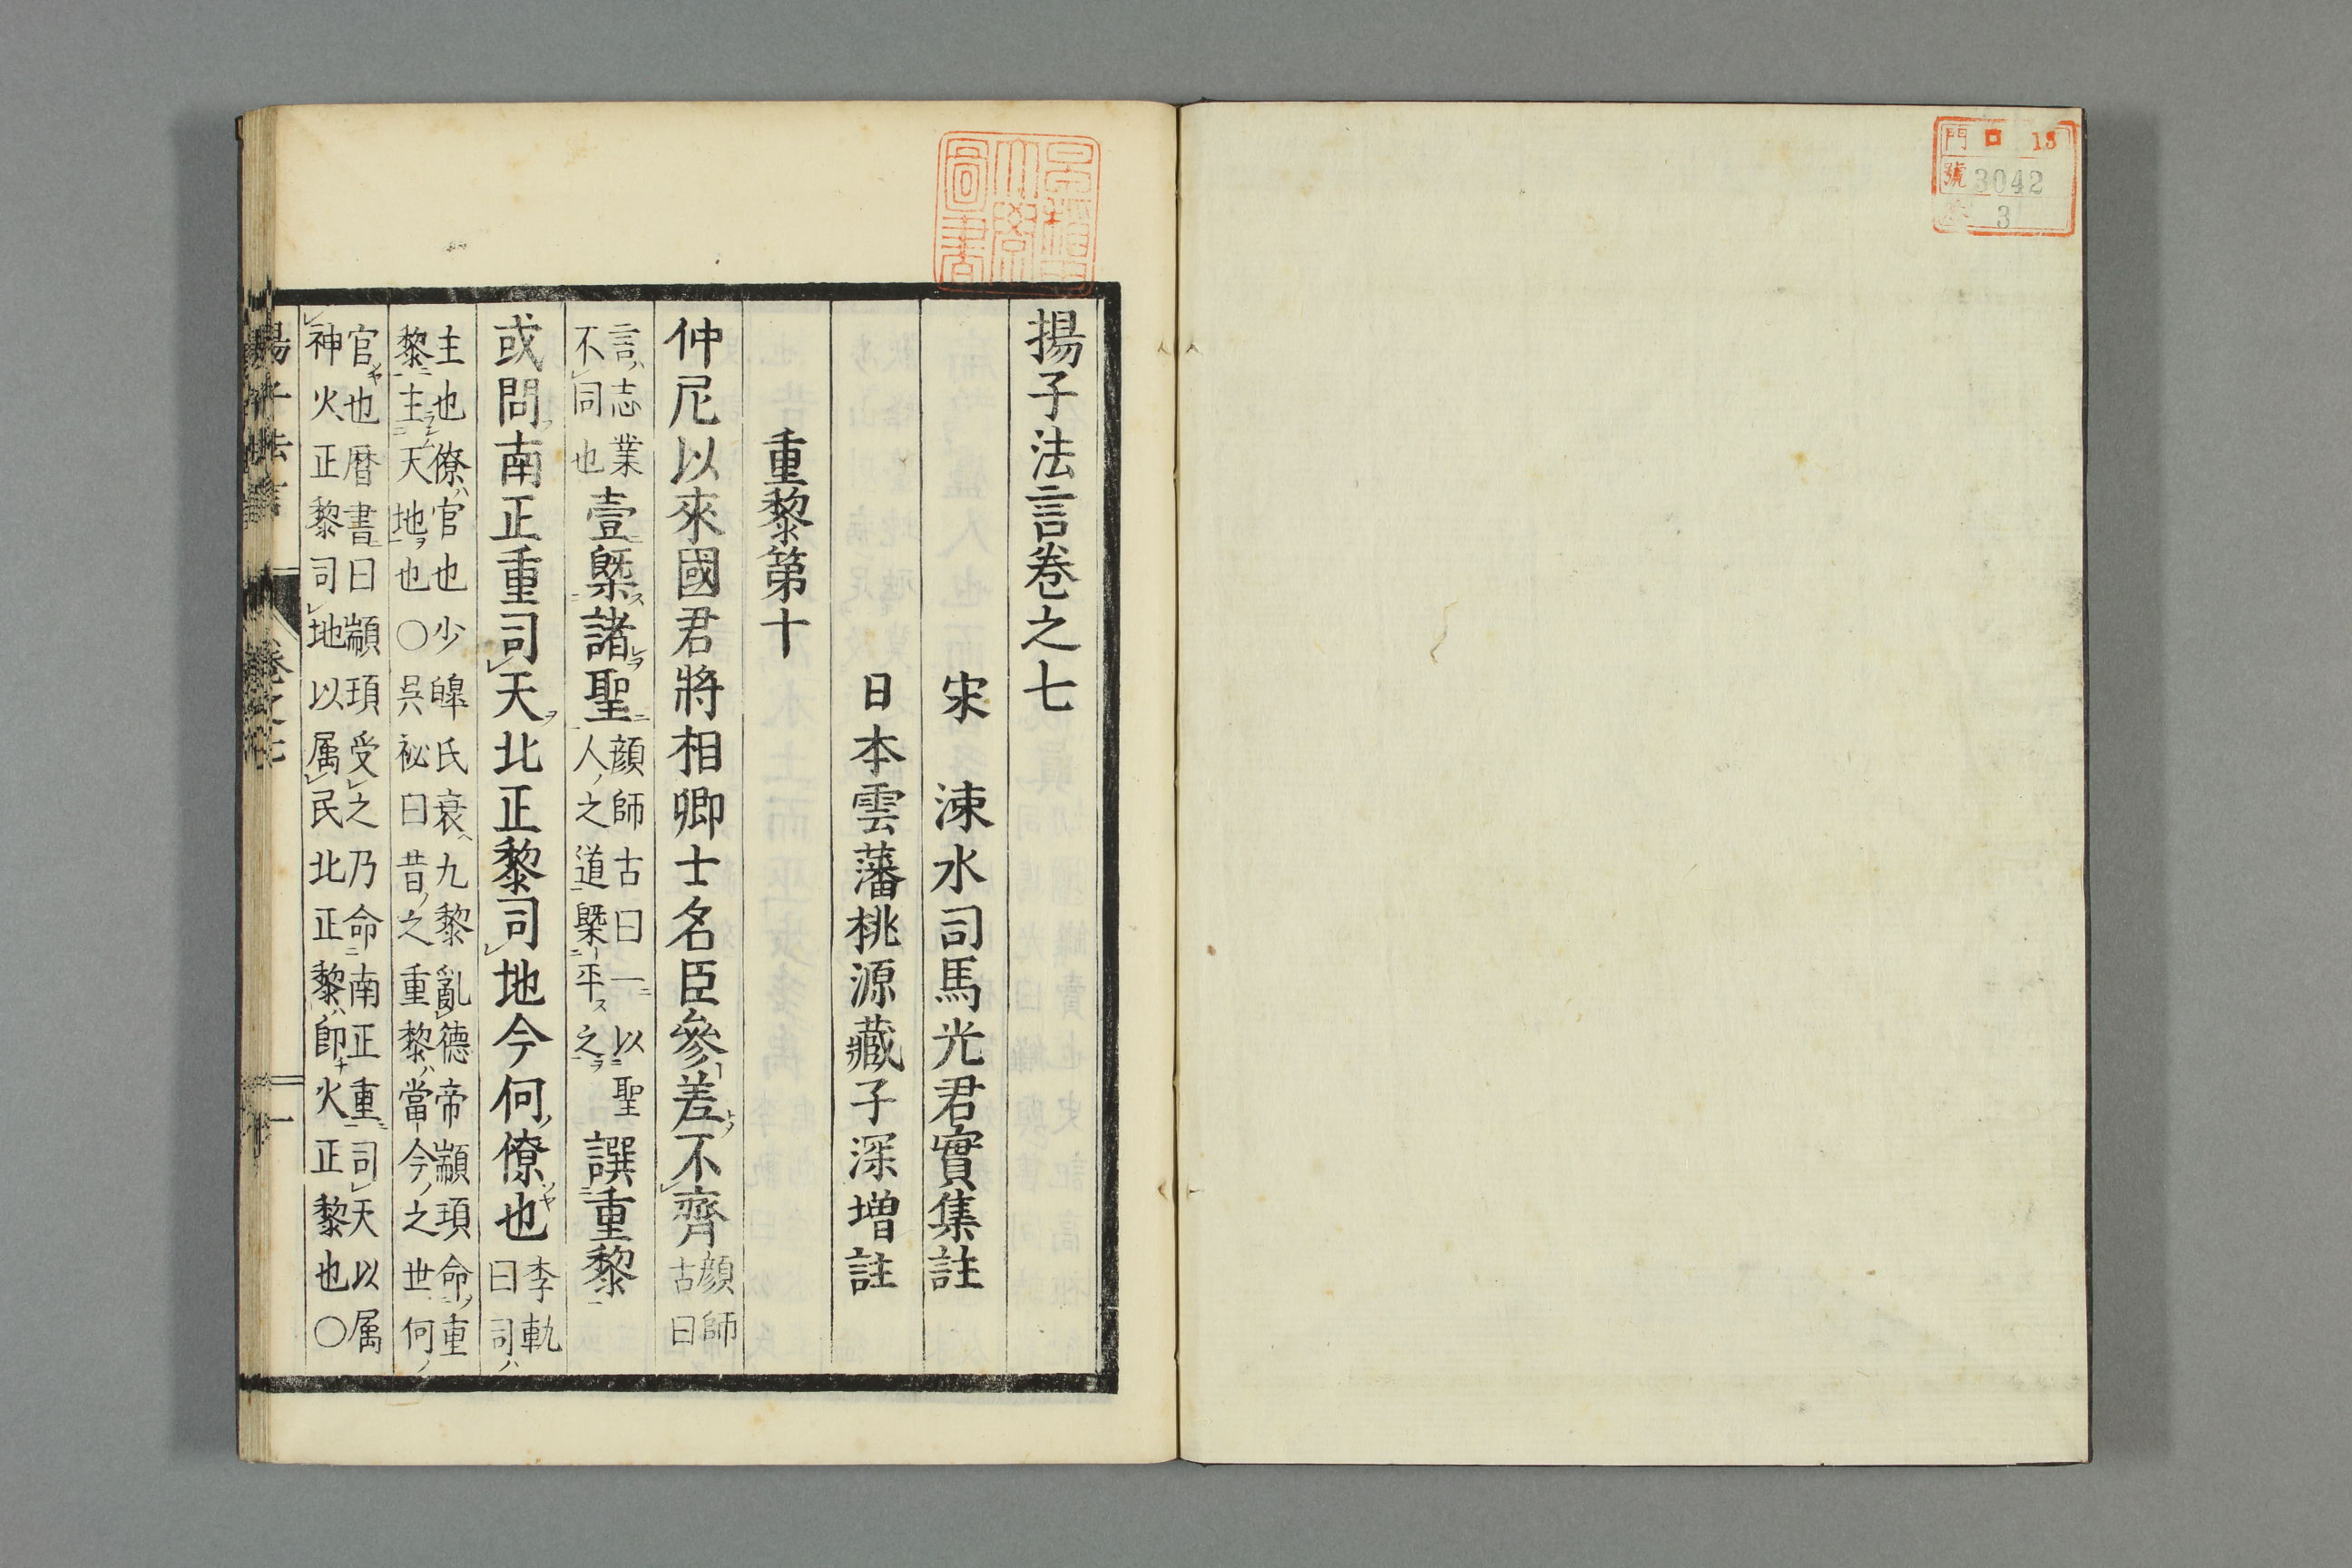 門 口 13
號 3042
3
早稻田大學圖書
揚子法言卷之七
宋 涑水司馬光君實集註
日本雲藩桃源藏子深增註
重黎第十
仲尼以來國君將相卿士名臣參差不齊顏師古曰
言志業不同也壹槩諸聖顏師古曰一以聖人之道槩平之譔重黎
或問南正重司天北正黎司地今何僚也李軌曰司
主也僚官也少皞氏衰九黎亂德帝顓頊命重
黎主天地也〇吳祕曰昔之重黎當今之世何
官也曆書曰顓頊受之乃命南正重司天以属
神火正黎司地以属民北正黎即火正黎也〇
卷之七
一